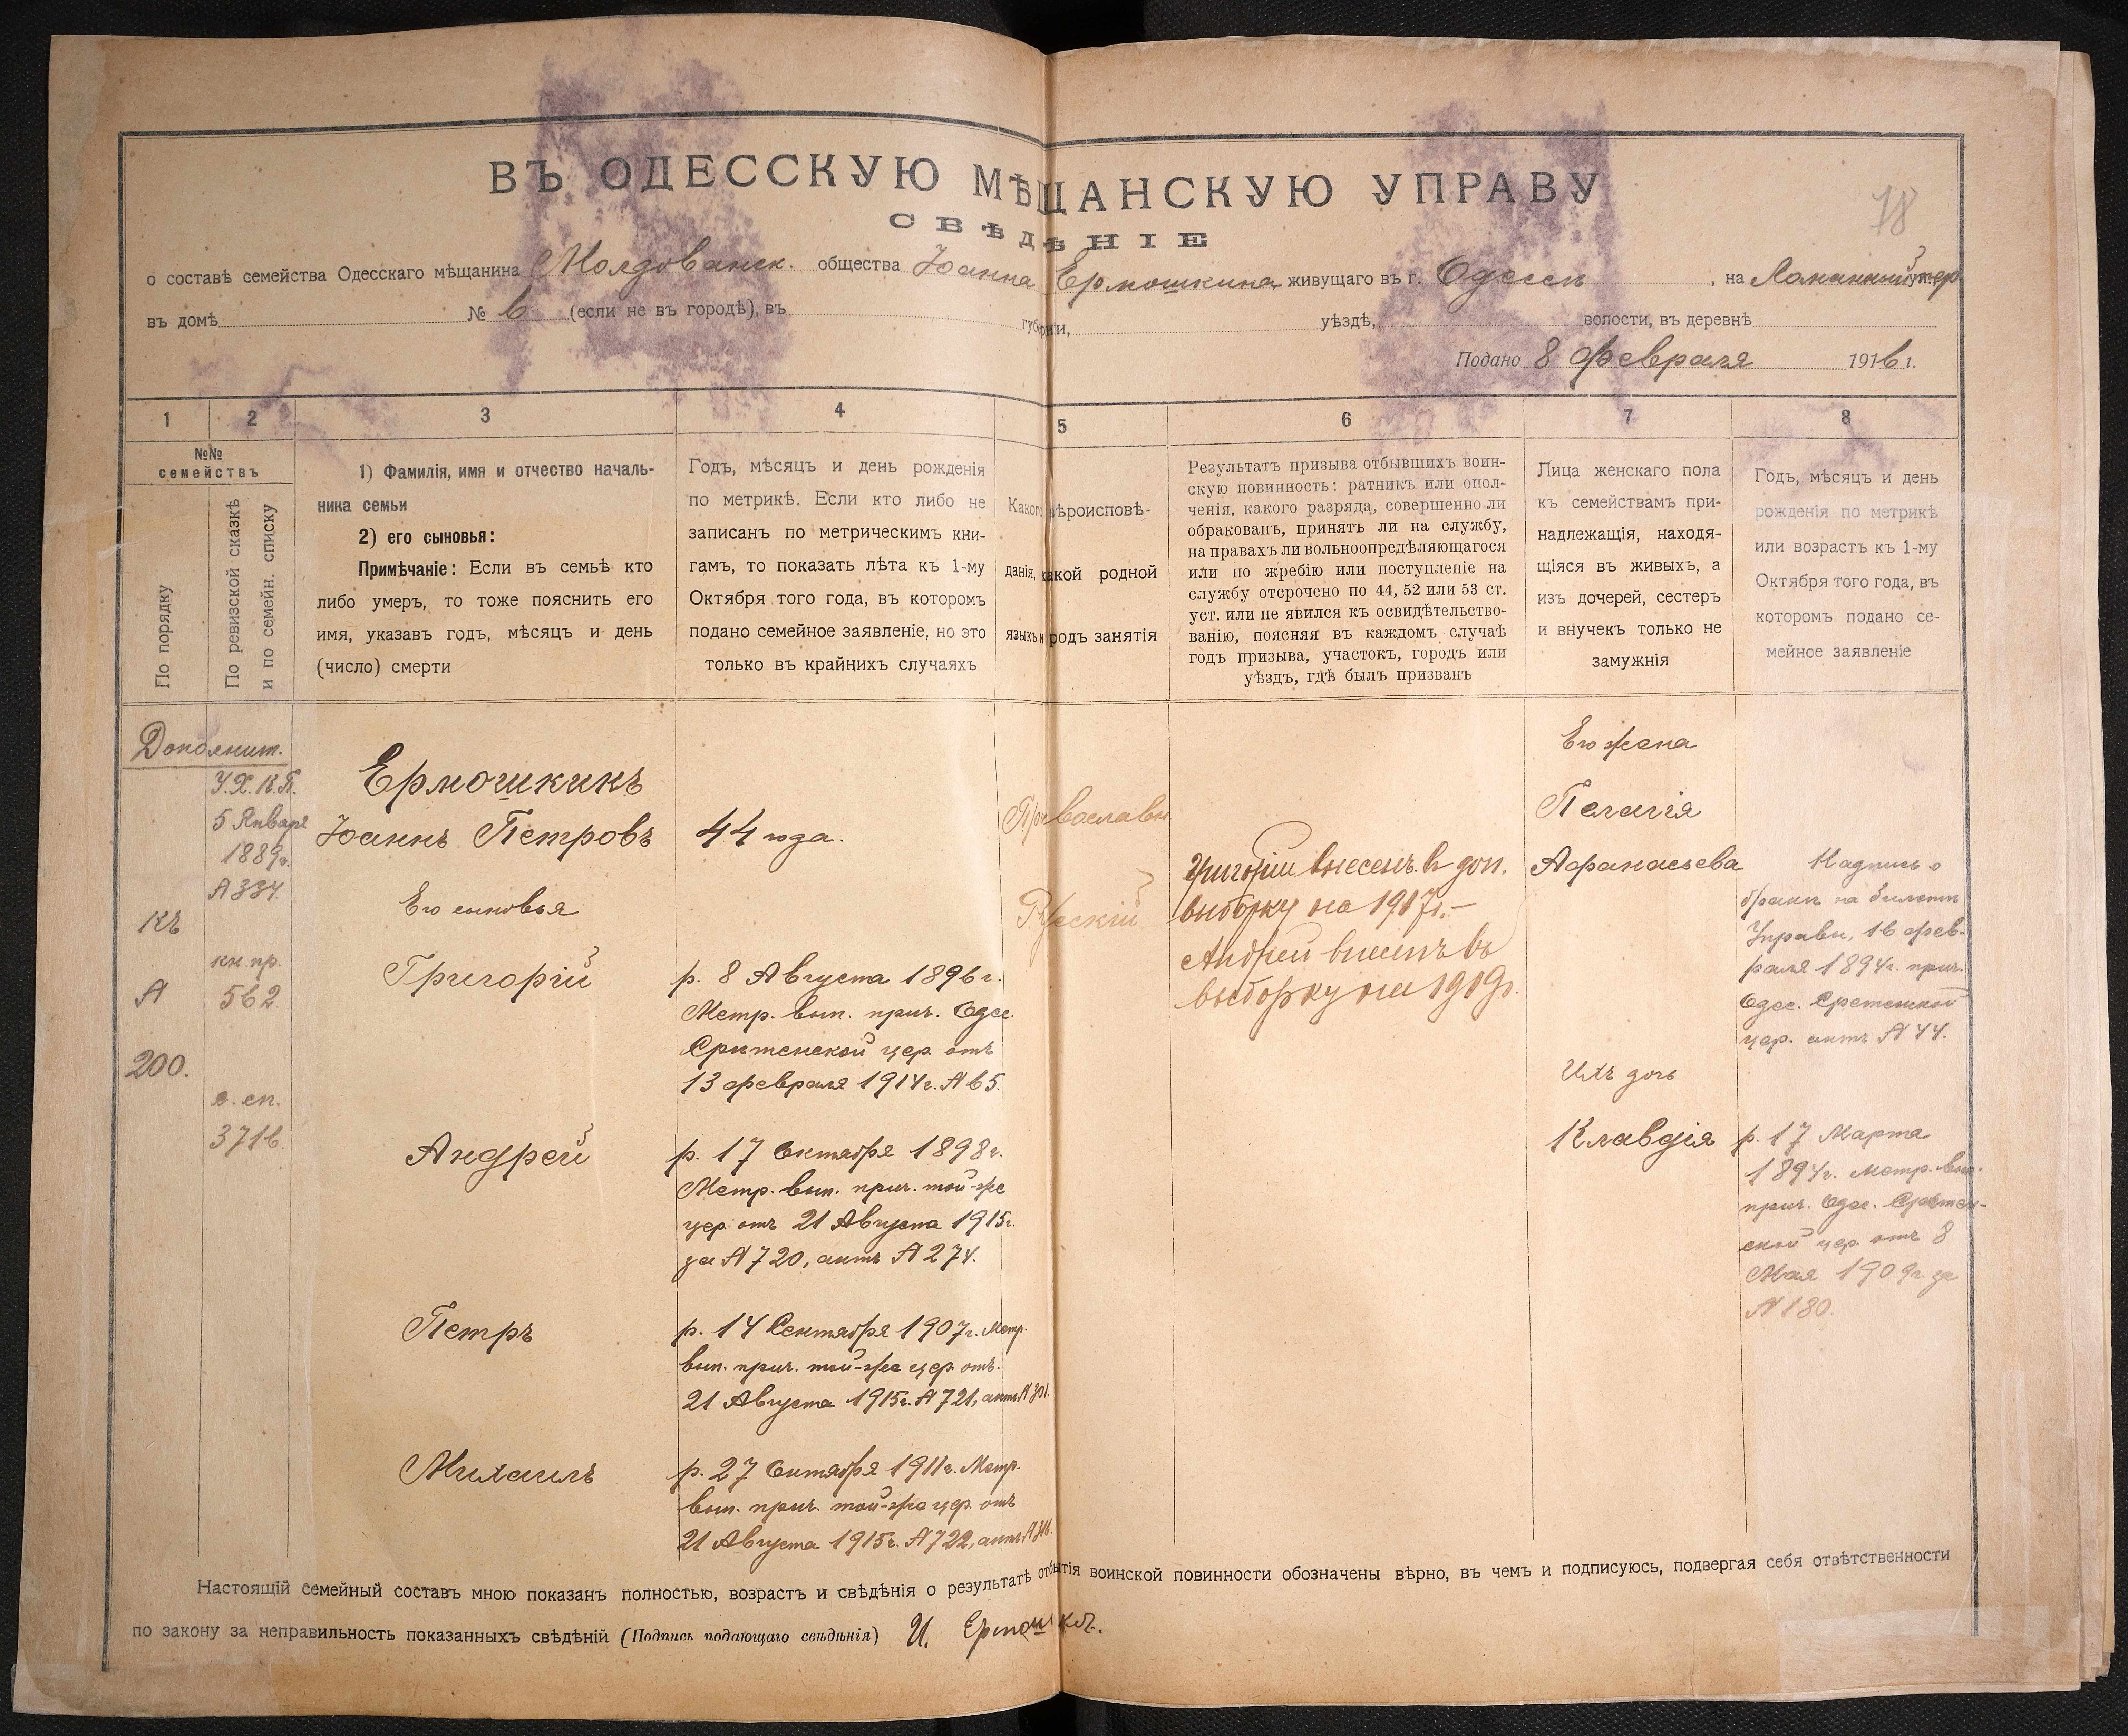 78
ВЪ ОДЕССКУЮ МѢЩАНСКУЮ УПРАВУ
СВѢДѢНІЕ
о составѣ семейства Одесскаго мѣщанина Молдованск. общества Іоанна Ермошкина живущаго въ г. Одессѣ, на
въ домѣ № 6 (если не въ городѣ), въ губерніи, уѣздѣ, волости, въ деревнѣ
Подано 8 февраля 1916 г.
1 2 3 4 5 6 7 8
№№
семействъ
По порядку
По ревизской сказкѣ
и по семейн. списку
1) Фамилія, имя и отчество началь-
ника семьи
2) его сыновья:
Примѣчаніе: Если въ семьѣ кто
либо умеръ, то тоже пояснить его
имя, указавъ годъ, мѣсяцъ и день
(число) смерти
Годъ, мѣсяцъ и день рожденія
по метрикѣ. Если кто либо не
записанъ по метрическимъ кни-
гамъ, то показать лѣта къ 1-му
Октября того года, въ которомъ
подано семейное заявленіе, но это
только въ крайнихъ случаяхъ
Какого вѣроисповѣ-
данія, какой родной
языкъ и родъ занятія
Результатъ призыва отбывшихъ воин-
скую повинность: ратникъ или опол-
ченія, какого разряда, совершенно ли
обракованъ, принятъ ли на службу,
на правахъ ли вольноопредѣляющагося
или по жребію или поступленіе на
службу отсрочено по 44, 52 или 53 ст.
уст. или не явился къ освидѣтельство-
ванію, поясняя въ каждомъ случаѣ
годъ призыва, участокъ, городъ или
уѣздъ, гдѣ былъ призванъ
Лица женскаго пола
къ семействамъ при-
надлежащія, находя-
щіяся въ живыхъ, а
изъ дочерей, сестеръ
и внучекъ только не
замужнія
Годъ, мѣсяцъ и день
рожденія по метрикѣ
или возрастъ къ 1-му
Октября того года, въ
которомъ подано се-
мейное заявленіе
Дополнит.
къ
№
200.
У.Х.К.П.
5 Января
1889г.
№ 334.
кн. пр.
562
с. сп.
3716.
Ермошкинъ
Іоаннъ Петровъ
Его сыновья
Григорій
Андрей
Петръ
Михаилъ
44 года.
р. 8 Августа 1896 г.
Метр. вып. прич. Одес.
Срѣтенской цер. отъ
13 февраля 1914г. № 65.
р. 17 Октября 1898г.
Метр. вып. прич. той-же
цер. отъ 21 Августа 1915г.
за № 720, актъ № 274.
р. 14 Сентября 1907г. Метр.
вып. прич. той-же цер. отъ
21 Августа 1915г. № 721, актъ №
р. 27 Октября 1911г. Метр.
вып. прич. той-же цер. отъ
21 Августа 1915г. № 722, актъ №
Православн.
Русскій
Григорій внесенъ в доп.
выборку на 1917г.-
Андрей внесенъ въ
выборку на 1919г.
Его жена
Пелагія
Афанасьева
Ихъ дочь
Клавдія
Надпись о
бракѣ на билетѣ
Управы, 16 фев-
раля 1894г. прич.
Одес. Срѣтенской
цер. актъ № 44.
р. 17 Марта
1894г. Метр. вып.
прич. Одес. Срѣтен-
ской цер. отъ 8
Мая 1909г. за
№ 180.
Настоящій семейный составъ мною показанъ полностью, возрастъ и свѣдѣнія о результатѣ отбытія воинской повинности обозначены вѣрно, въ чемъ и подписуюсь, подвергая себя отвѣтственности
по закону за неправильность показанныхъ свѣдѣній (Подпись подающаго свѣдѣнія) И.